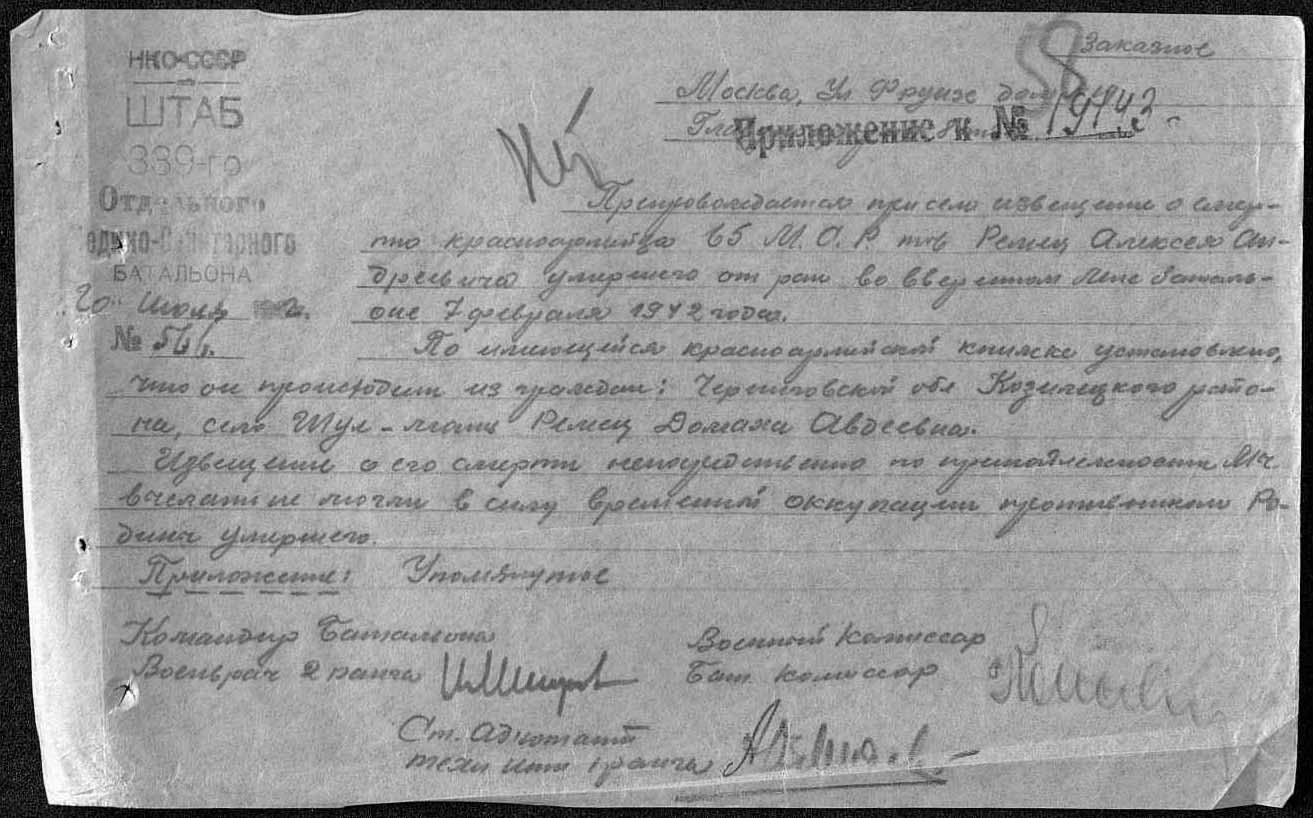 НКО-СССР
ШТАБ
339-го
Отдельного
Медико-Санитарного
БАТАЛЬОНА
20 Июля 2.
№ 566.
Заказное
Москва, Ул Фрунзе дом
Приложение к № 19143
Препровождается при сем извещение о смер-
ти красноармейца 65 М.С.П. тов Ремец Алексея Ан-
дреевича умершего от ран во вверенном мне баталь-
оне 7 февраля 1942 года.
По имеющейся красноармейской книжке установлено,
что он происходит из граждан: Черниговской обл Козелецкого райо-
на, село Шуляки Ремец Домаха Авдеевна.
Извещение о его смерти непосредственно по принадлежности Мы
выслать не могли в силу временной оккупации противником Ро-
дины умершего.
Приложение: Упомянутое
Командир Батальона
Военврач 2 ранга
Военный Комиссар
Бат. комиссар
Ст. Адютант
техн инт 1 ранга